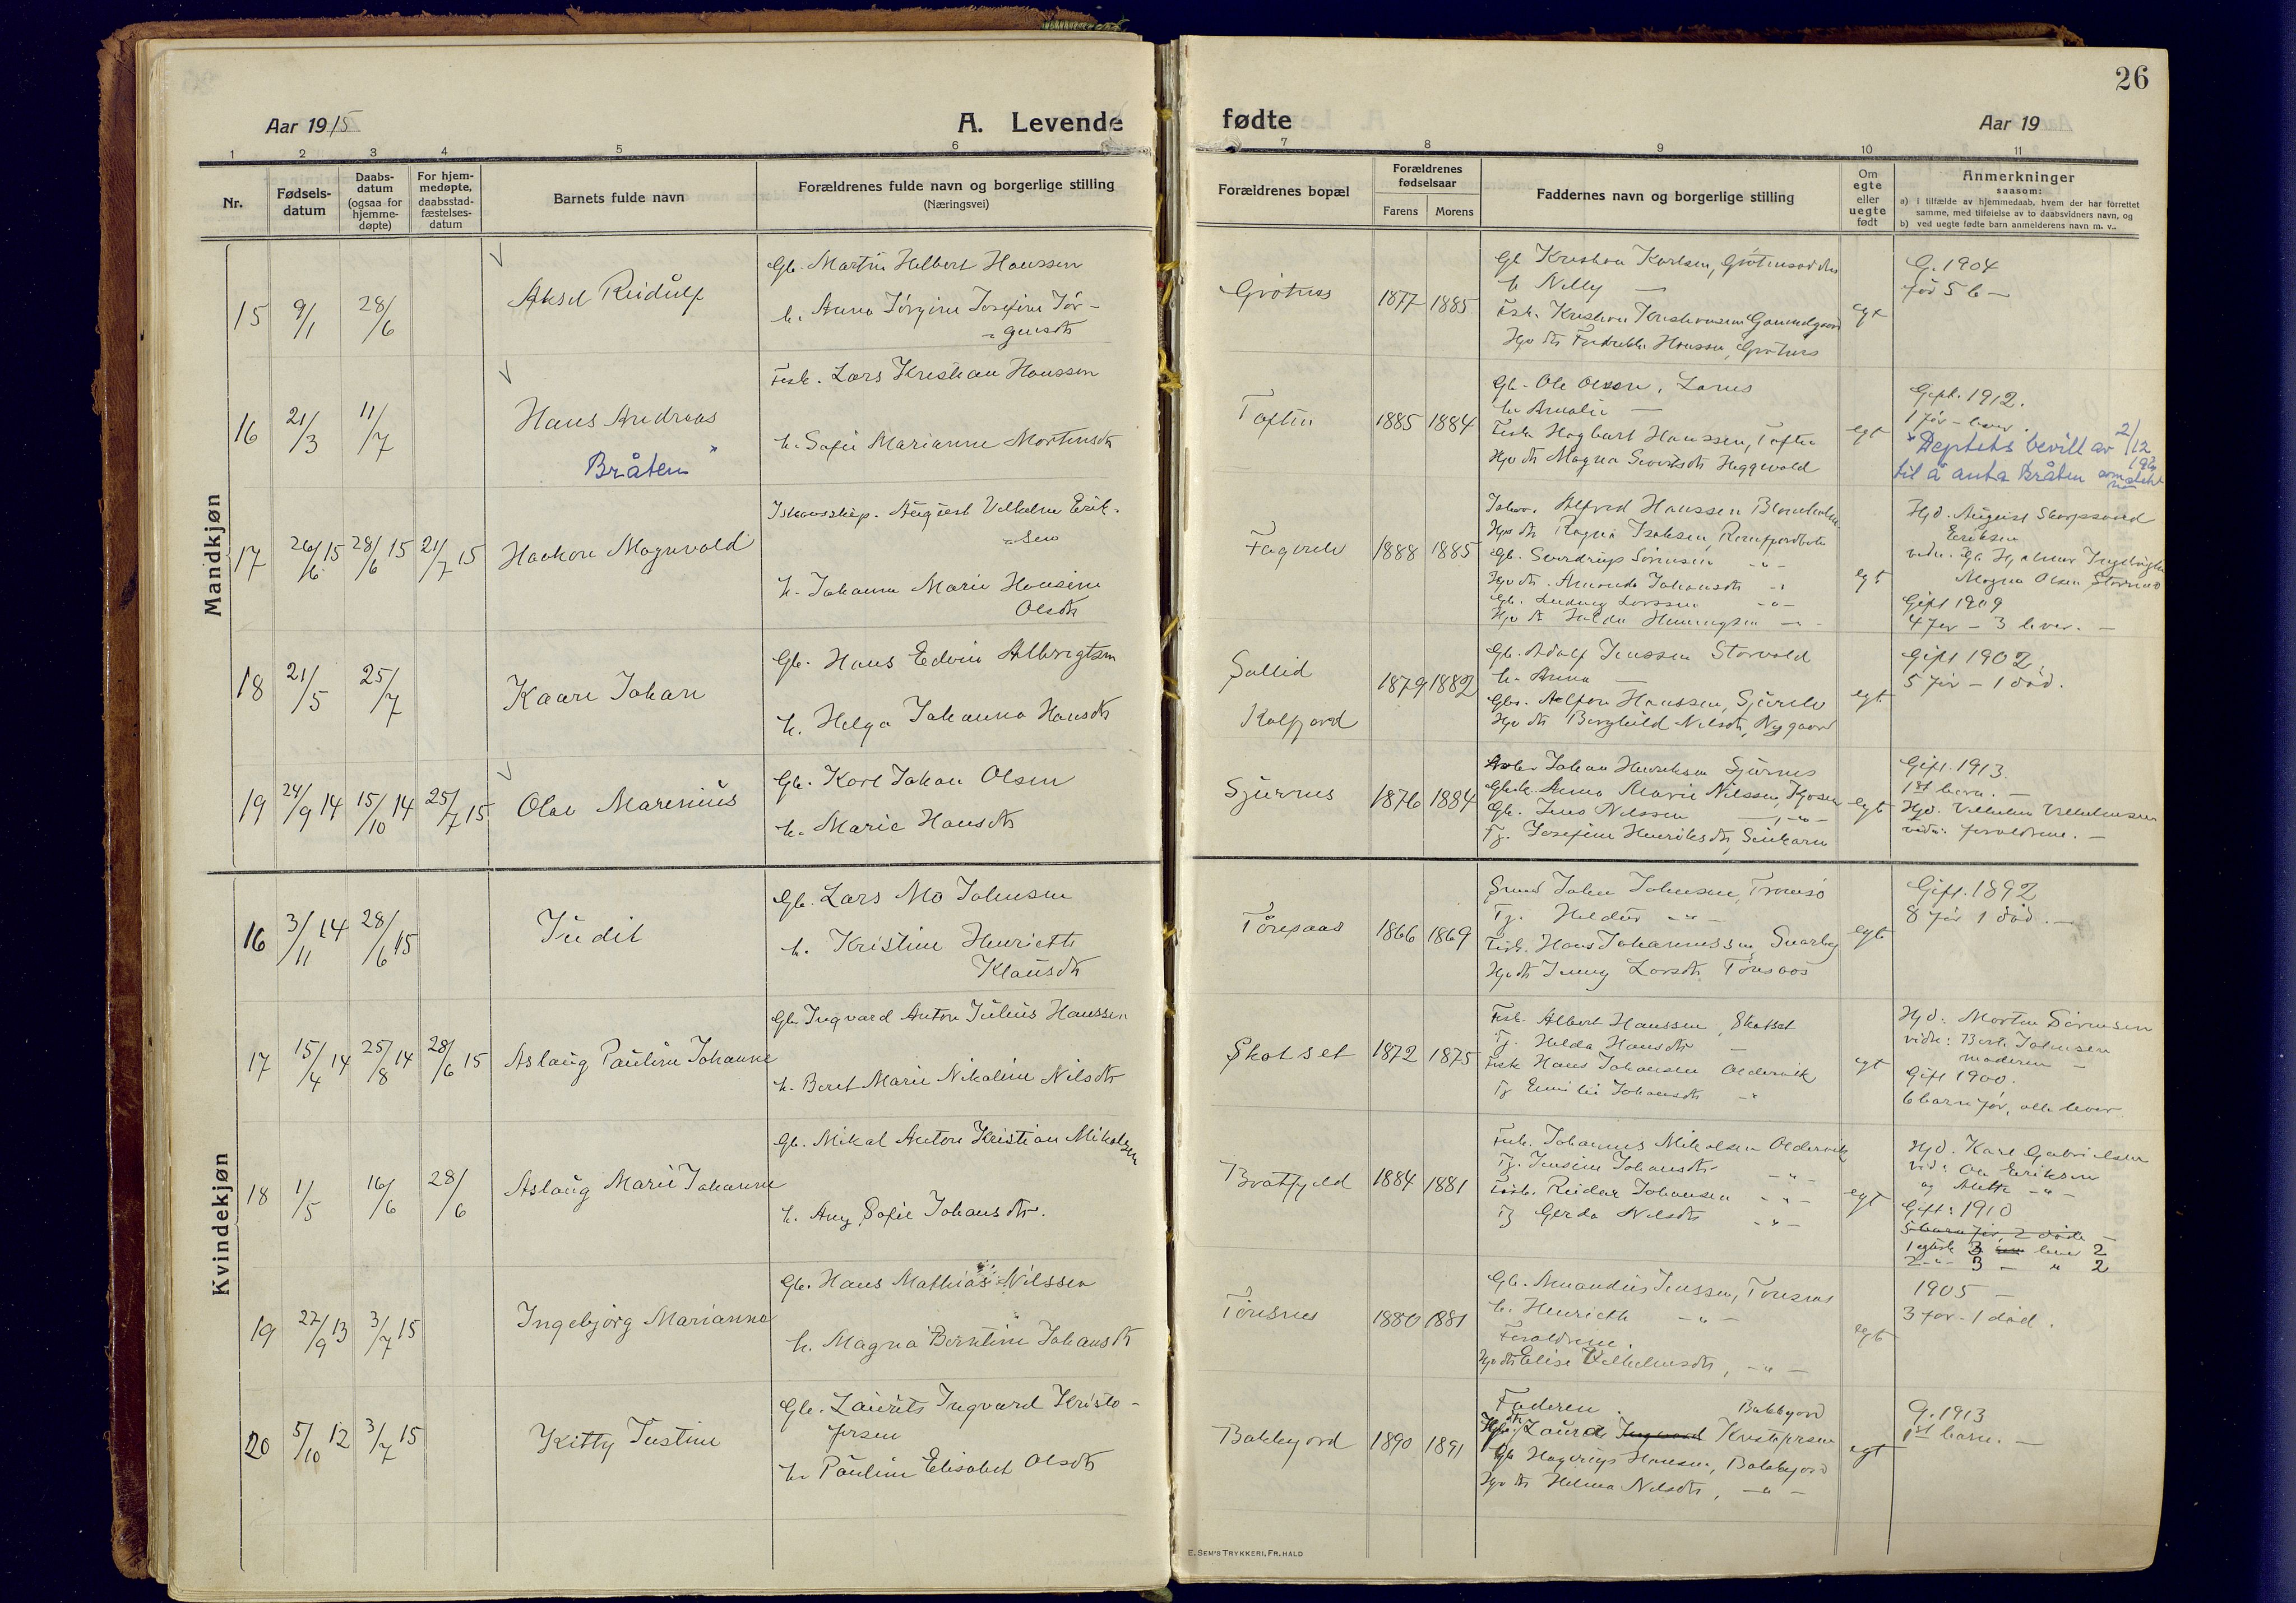 26
Aar 1915
A. Levende
fødte
Aar 19
1 2 3 4 5 6 7 8 9 10 11
Nr.
Fødsels-
datum
Daabs-
datum
(ogsaa for
hjemme-
døpte)
For hjem-
medøpte,
daabsstad-
fæstelses-
datum
Barnets fulde navn
Forældrenes fulde navn og borgerlige stilling
(Næringsvei)
Forældrenes bopæl
Forældrenes
fødselsaar
Farens Morens
Faddernes navn og borgerlige stilling
Om
egte
eller
uegte
født
Anmerkninger
saasom:
a) i tilfælde av hjemmedaab, hvem der har forrettet
samme, med tilføielse av to daabsvidners navn, og
b) ved uegte fødte barn anmelderens navn m. v..
Mandkjøn
15 9/1 28/6
Aksel Reidulf
Gb. Martin Hilbert Hanssen
h. Anna Jørgine Josefine Jør-
gensdt
Grøtnes
1877 1885
Gb Kristian Karlsen, 
h Nelly —
Fisk. Kristian Kristiansen
Hgv dt Fredrikke Hanssen, Grøtnes
egt
G. 1904
før 5 b —
16 21/3 11/7
Hans Andreas
Bråten *
Fisk. Lars Kristian Hanssen
h. Sofie Marianne Mortensdt
Toften
1885 1884
Gb. Ole Olsen, Zarnes
h Amalie —
Fisk Hagbart Hanssen, Toften
Hgv dt Magna Heggevold
egt
Gift. 1912.
1 før – lever.
* Deptets bevill av 2/12
til å anta Bråten som
17 26/6 15 28/6 15 21/7 15
Haakon Magnvald
Ishavsskip. August Vilhelm Erik-
sen
h. Johanna Marie Hansine
Olsdt
Fagerli
1888 1885
Ishav. Alfred Hanssen
Hgv dt Ragna Isaksen,
Gb. Severdrup Sørensen -"-
Hgv dt. Amanda Johansdt -"-
Gb. Ludvig Larssen -"-
Hgv dt Hulda Henningsen -"-
egt
Hjd. August Skarpsvend
Eriksen
vidn. Gb Hjalmar Ingebrigtsen
Magna Olsen Stornes
Gift 1909
4 før – 3 lever. —
18 21/5 25/7
Kaare Johan
Gb. Hans Edvin Albrigtsen
h. Helga Johanna Hansdt
Sollid
Kalfjord
1879 1882
Gb. Adolf Jenssen Storvold
h. Anna —
Gbs. Alfon Hanssen, Sjurelv
Hgv dt Borghild Nilsdt, Nygaard
egt
Gift 1902.
5 før – 1 død.
19 24/9 14 15/10 14 25/7 15
Olav Marenius
Gb. Karl Johan Olsen
h. Marie Hansdt
Sjurnes
1876 1884
Johan Henriksen Sjurnes
Anna Marie Nilssen,
Gb. Jens Nilssen —"—
Tj. Josefine Henriksdt,
egt
Gift. 1913.
1st barn. —
Hjd. Vilhelm Vilhelmsen
vidn: forældrene. —
Kvindekjøn
16 3/11 14 28/6 15
Judit
Gb. Lars Mo Johnsen
h. Kristine Henriette
Klausdt
Tønsaas
1866 1869
John Johnsen, Tromsø
Tj. Heldur -"-
Fisk. Hans Johannessen Snarby
Hgv dt Jenny Larsdt Tønsaas
egt
Gift. 1892
8 før 1 død. —
17 15/4 14 25/8 14 28/6 15
Aslaug Pauline Johanne
Gb Ingvard Anton Julius Hanssen
h. Beret Marie Nikoline Nilsdt
Skotset
1872 1875
Fisk. Albert Hanssen, Skotset
Tj. Hilda Hansdt —
Fisk Hans Johansen Oldervik
Tj Emilie Johansdt -"
egt
Hjd: Morten Sørensen
vidn: Berit Johnsen
moderen —
Gift 1900.
6 barn før, alle lever.
18 1/5 16/6 28/6
Aslaug Marie Johanne
Gb. Mikal Anton Kristian Mikalsen
h. Any Sofie Johansdt.
Bratfjeld
1884 1881
Fisk. Johannes Mikalsen Oldervik
Tj. Jensine Johansdt -"-
Fisk. Reidar Johansen -"-
Tj Gerda Nilsdt -"-
egt
Hjd. Karl Gabrielsen
vid: Ole Eriksen
og Alette -"-
Gift: 1910
5 barn før, 2 døde —
1 egtsk 3 lever 2
2 -"- 3 — " 2
19 27/9 13 3/7 15
Ingebjørg Marianne
Gb. Hans Mathias Nilssen
h. Magna Berntine Johansdt
Tønsnes
1880 1881
Gb. Amandus Jenssen, Tønsnes
h. Henriette -"-
Forældrene.
Hgv dt Elise Vilhelmsdt, -"-
egt
1905 —
3 før – 1 død.
20 5/10 12 3/7 15
Kitty Justine
Gb. Laurits Ingvard Kristo-
fersen
h. Pauline Elisabet Olsdt
Bakkejord
1890 1891
Faderen. Bakkejord
Hgv. dt Laura Ingvard Kristofersen
Gb Hagerup Hansen, Bakkejord
Hgv dt Helma Nilsdt, -"-
egt
G. 1913
1st barn. —
E. SEM'S TRYKKERI, FR. HALD